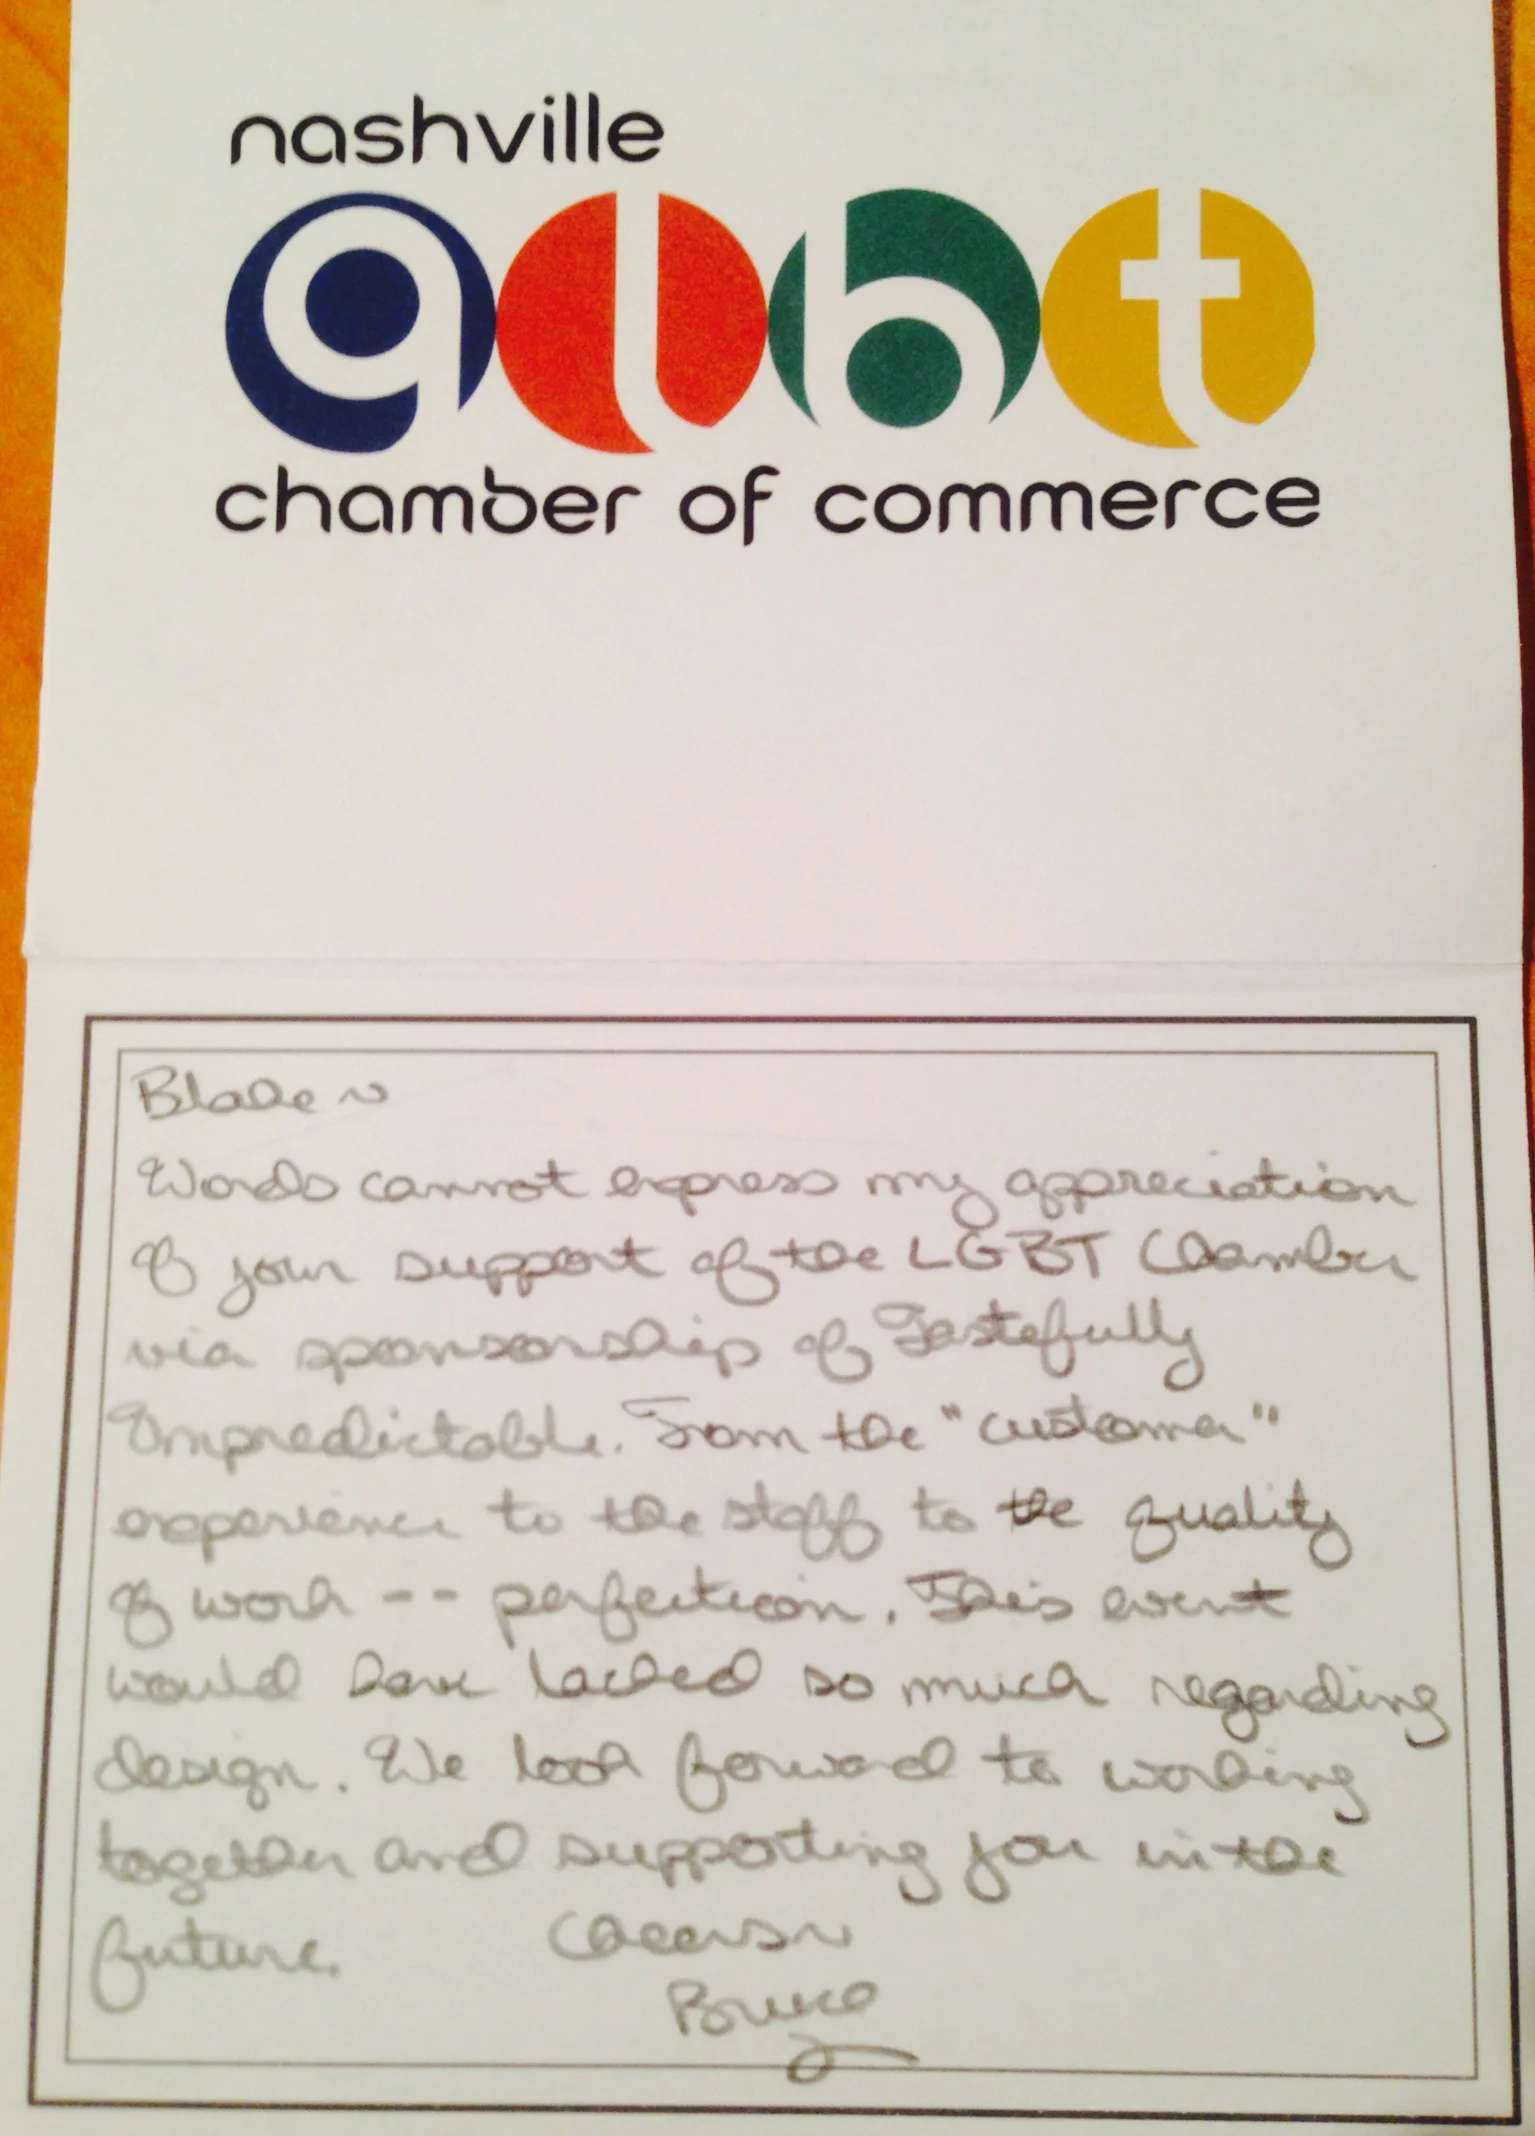 nashville
glbt
chamber of commerce
Blade ~
Words cannot express my appreciation
of your support of the LGBT Chamber
via sponsorship of Tastefully
Unpredictable. From the "customer"
experience to the staff to the quality
of work -- perfection. This event
would have lacked so much regarding
design. We look forward to working
together and supporting you in the
future. Cheers ~
Bruce